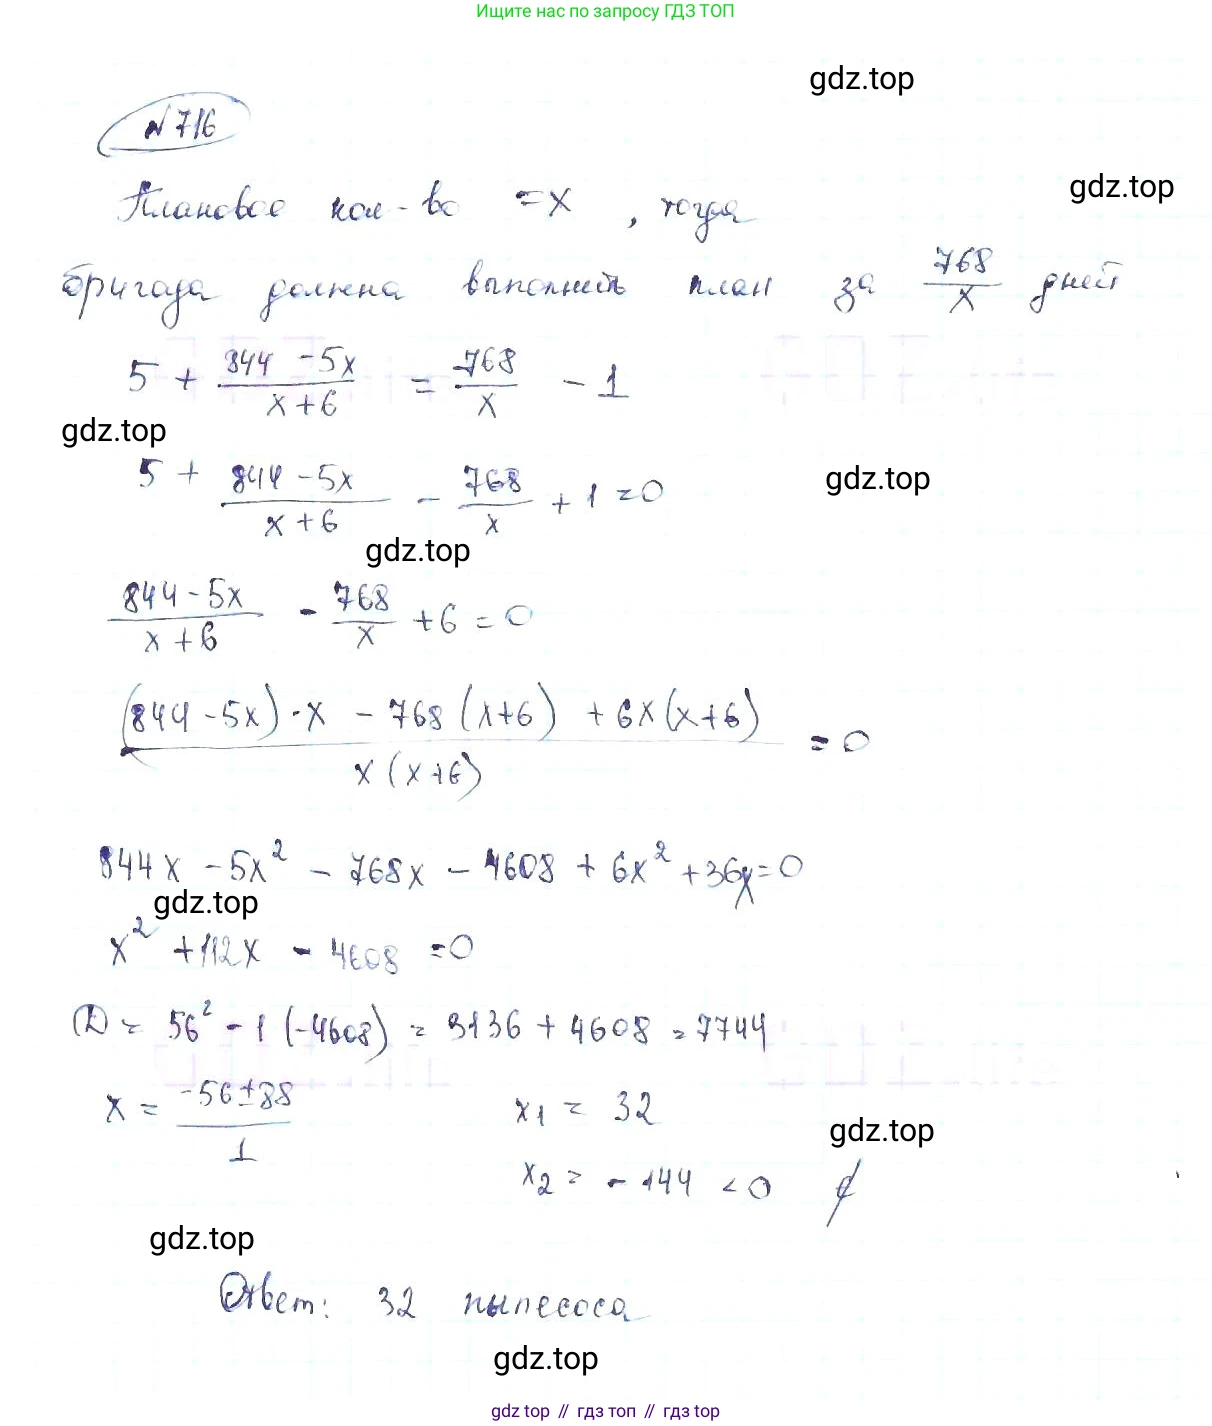 Ищите нас по запросу ГДЗ ТОП
gdz.top
№716
gdz.top
Плановое кол-во = x, тогда
бригада должна выполнить план за 768/x дней
5 + (844 - 5x)/(x + 6) = 768/x - 1
gdz.top
5 + (844 - 5x)/(x + 6) - 768/x + 1 = 0
gdz.top
gdz.top
(844 - 5x)/(x + 6) - 768/x + 6 = 0
((844 - 5x) · x - 768(x + 6) + 6x(x + 6))/(x(x + 6)) = 0
844x - 5x² - 768x - 4608 + 6x² + 36x = 0
gdz.top
x² + 112x - 4608 = 0
D = 56² - 1(-4608) = 3136 + 4608 = 7744
x = (-56 ± 88)/1 x₁ = 32
gdz.top
x₂ = -144 < 0 ∉
gdz.top
Ответ: 32 пылесоса
gdz.top
gdz top // гдз топ // gdz top